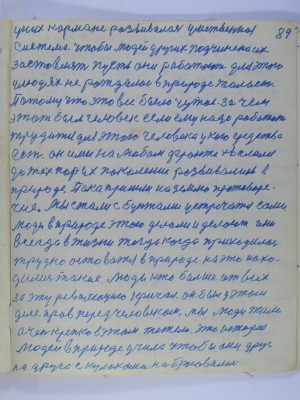 у них кармане развивалась умственная 89
система. чтобы людей других подчинена их
заставляют пусть они работают для этого
и людях не рождался в природе талант.
Потому что это все было чутья. за чем
этот был человек если ему надо работать
трудится для этого человека у кого средства
есть. он ими на любом фронте
до тех пор их поколение развивались в
природе. Пока пришли на землю противоре-
чие. Мы стали с бунтами устречатся сами
люди в природе этого делали и делают они
всегда в жизни тогда когда приходилось
трудно оставатся в природе на это нахо-
дились такие. люди кто больше от всех
за эту революцию кричал. он был в этом
деле прав перед человеком. мы люди жили
очен крепко в этом теплом. это история
людей в природе учила чтобы они друг
на друга с кулаками набросывались